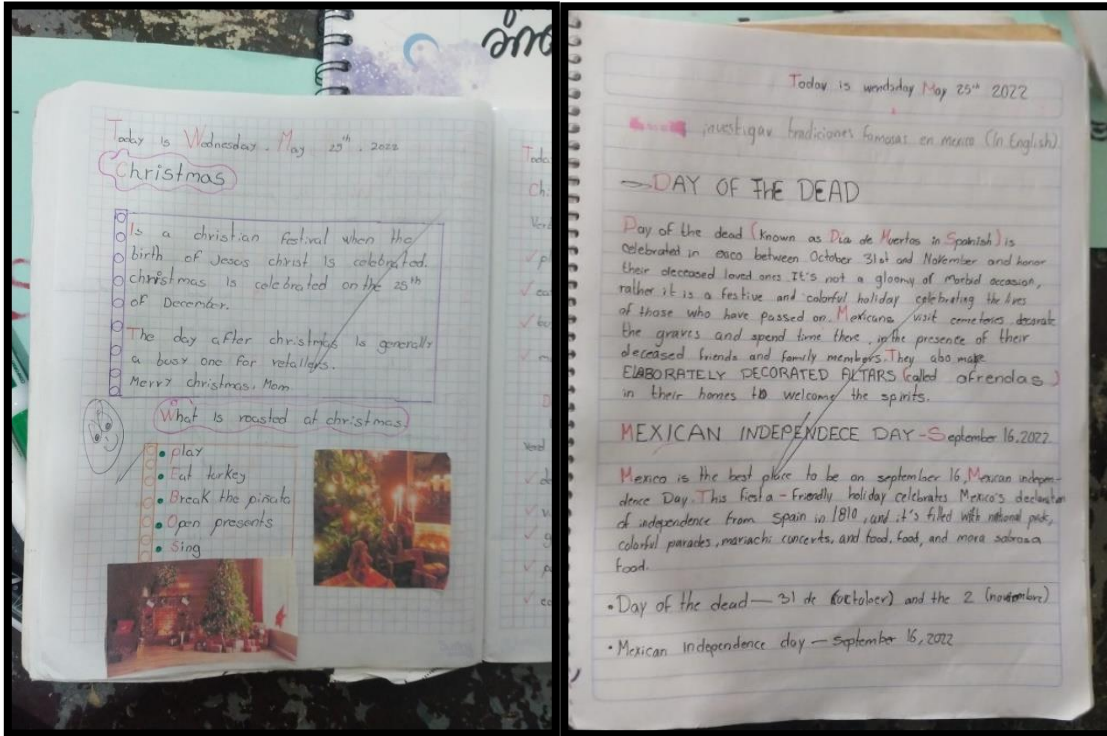 Today is Wednesday. May 25th. 2022
Christmas
Is a christian festival when the
birth of Jesus christ Is celebrated.
christmas is celebrated on the 25th
of December.
The day after christmas is generally
a busy one for retailers.
Merry christmas. Mom
What is roasted at christmas?
• play
• Eat turkey
• Break the piñata
• Open presents
• Sing
Today is wendsday May 25th 2022
investigar tradiciones famosas en mexico (In English).
DAY OF THE DEAD
Day of the dead (known as Día de Muertos in Spanish) is
celebrated in exico between October 31st and November and honor
their deceased loved ones. It's not a gloomy of morbid occasion,
rather it is a festive and colorful holiday celebrating the lives
of those who have passed on. Mexicans visit cemeteries, decorate
the graves and spend time there, in the presence of their
deceased friends and family members. They also make
ELABORATELY DECORATED ALTARS (called ofrendas)
in their homes to welcome the spirits.
MEXICAN INDEPENDECE DAY - September 16, 2022
Mexico is the best place to be on september 16, Mexican indepen-
dence Day. This fiesta - friendly holiday celebrates Mexico's declaration
of independence from Spain in 1810, and it's filled with national pride,
colorful parades, mariachi concerts, and food, food, and more sabrosa
food.
• Day of the dead — 31 de (october) and the 2 (noviembre)
• Mexican Independence day — september 16, 2022